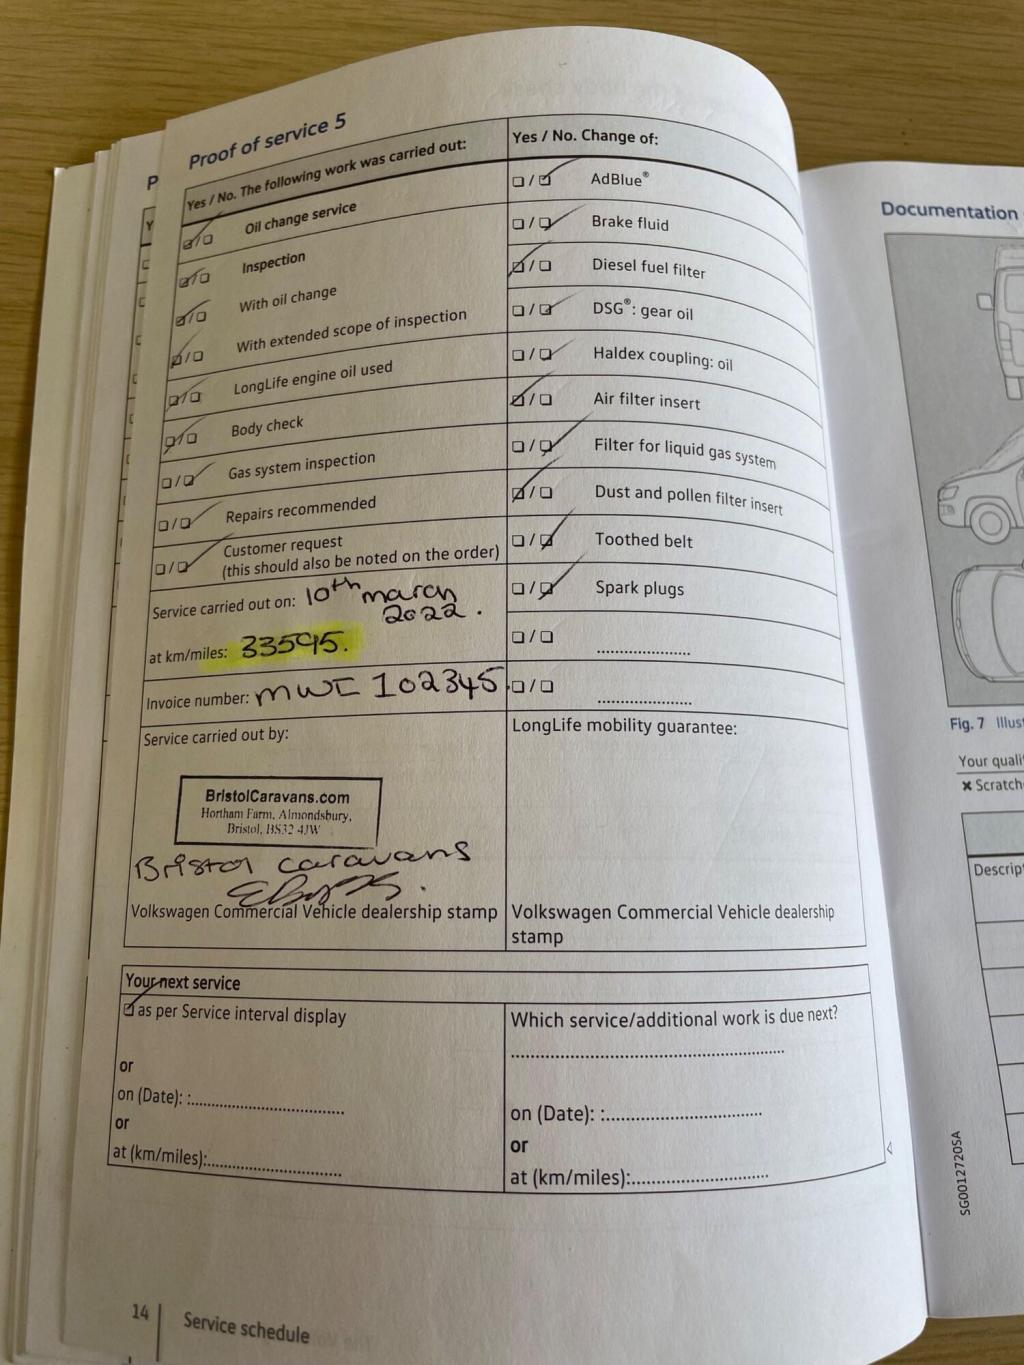 Proof of service 5
Yes / No. The following work was carried out:
☑/☐ Oil change service
☑/☐ Inspection
☑/☐ With oil change
☑/☐ With extended scope of inspection
☑/☐ LongLife engine oil used
☑/☐ Body check
☐/☑ Gas system inspection
☐/☑ Repairs recommended
☐/☑ Customer request
(this should also be noted on the order)
Service carried out on: 10th march
2022.
at km/miles: 33595.
Invoice number: MWI 102345
Yes / No. Change of:
☐/☑ AdBlue®
☐/☑ Brake fluid
☑/☐ Diesel fuel filter
☐/☑ DSG®: gear oil
☐/☑ Haldex coupling: oil
☑/☐ Air filter insert
☐/☑ Filter for liquid gas system
☑/☐ Dust and pollen filter insert
☐/☑ Toothed belt
☐/☑ Spark plugs
☐/☐ ....................
☐/☐ ....................
Service carried out by:
BristolCaravans.com
Hortham Farm, Almondsbury,
Bristol, BS32 4JW
Bristol caravans
Volkswagen Commercial Vehicle dealership stamp
LongLife mobility guarantee:
Volkswagen Commercial Vehicle dealership
stamp
Your next service
☑ as per Service interval display
or
on (Date): :..............................
or
at (km/miles):..........................
Which service/additional work is due next?
......................................................
on (Date): :..............................
or
at (km/miles):..........................
14 Service schedule
Documentation
Fig. 7 Illust
Your quali
✖ Scratch
Descrip
SG0012720SA